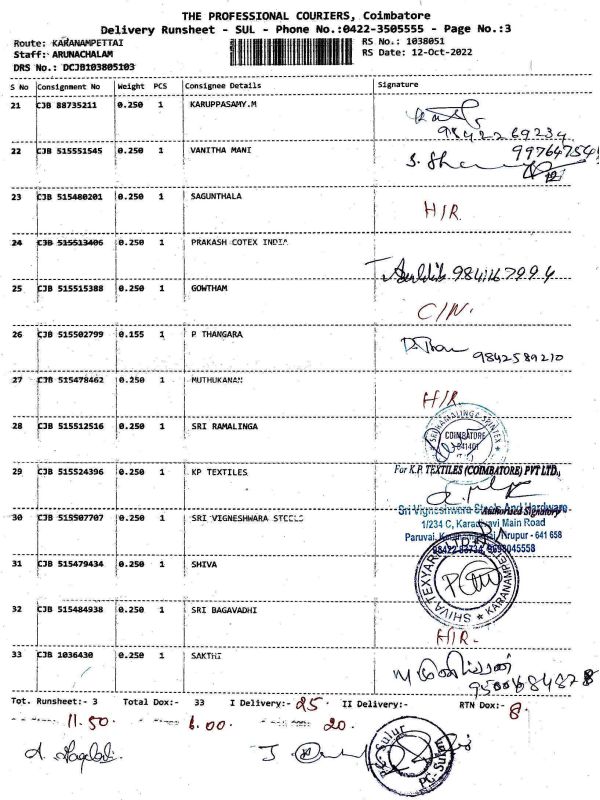 THE PROFESSIONAL COURIERS, Coimbatore
Delivery Runsheet - SUL - Phone No.:0422-3505555 - Page No.:3
Route: KARANAMPETTAI RS No.: 1038051
Staff: ARUNACHALAM RS Date: 12-Oct-2022
DRS No.: DCJB103805103
S No Consignment No Weight PCS Consignee Details Signature
21 CJB 88735211 0.250 1 KARUPPASAMY.M
9842269234
22 CJB 515551545 0.250 1 VANITHA MANI
23 CJB 515480201 0.250 1 SAGUNTHALA H/R.
24 CJB 515513406 0.250 1 PRAKASH COTEX INDIA
25 CJB 515515388 0.250 1 GOWTHAM C/N.
26 CJB 515502799 0.155 1 P THANGARA
9842589210
27 CJB 515478462 0.250 1 MUTHUKANAN H/R.
28 CJB 515512516 0.250 1 SRI RAMALINGA
COIMBATORE
641401
29 CJB 515524396 0.250 1 KP TEXTILES For K.P. TEXTILES (COIMBATORE) PVT LTD.,
Authorised Signatory
30 CJB 515507707 0.250 1 SRI VIGNESHWARA STEELS Sri Vigneshwara Steels And Hardware
1/234 C, Main Road
Paruvai, Tirupur - 641 658
31 CJB 515479434 0.250 1 SHIVA
SHIVA TEXYARN KARANAMPET
32 CJB 515484938 0.250 1 SRI BAGAVADHI H/R.
33 CJB 1036430 0.250 1 SAKTHI
Tot. Runsheet:- 3 Total Dox:- 33 I Delivery:- 25 II Delivery:- RTN Dox:- 8.
11.50. 6.00. 20.
PC-Sulur
PC-Sulur